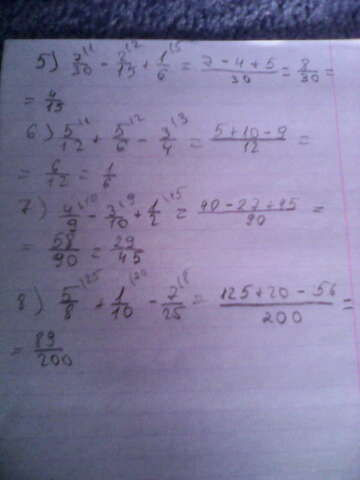 5) 7/30 \1 - 2/15 \2 + 1/6 \5 = (7 - 4 + 5)/30 = 8/30 =
= 4/15
6) 5/12 \1 + 5/6 \2 - 3/4 \3 = (5 + 10 - 9)/12 =
= 6/12 = 1/6
7) 4/9 \10 - 3/10 \9 + 1/2 \45 = (40 - 27 + 45)/90 =
= 58/90 = 29/45
8) 5/8 \25 + 1/10 \20 - 7/25 \8 = (125 + 20 - 56)/200 =
= 89/200